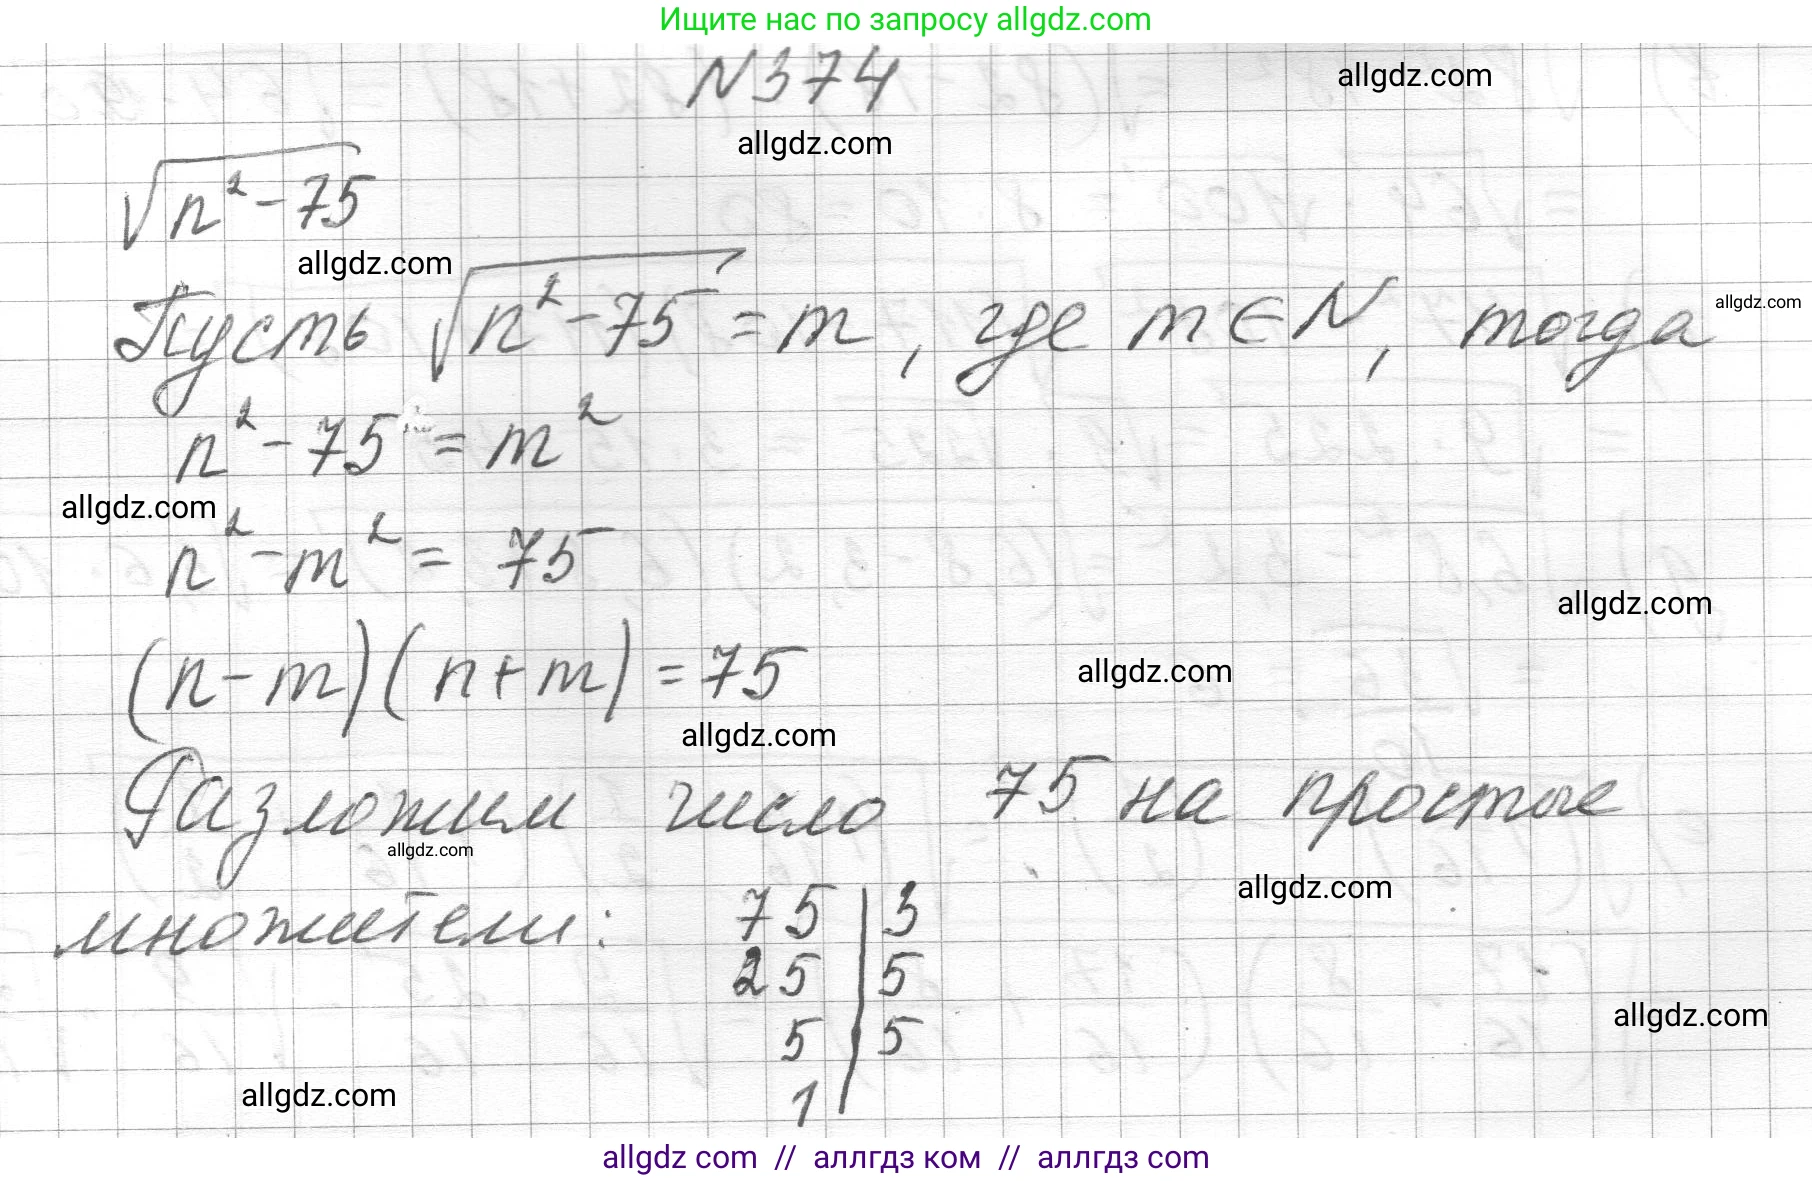 Ищите нас по запросу allgdz.com
N374
allgdz.com
allgdz.com
√n² - 75
allgdz.com
Пусть √n² - 75 = m, где m ∈ N, тогда
allgdz.com
n² - 75 = m²
allgdz.com
n² - m² = 75
allgdz.com
(n - m)(n + m) = 75
allgdz.com
allgdz.com
Разложим число 75 на простые
allgdz.com
allgdz.com
множители: 75 | 3
25 | 5
5 | 5
allgdz.com
1
allgdz.com
allgdz com // аллгдз ком // аллгдз com